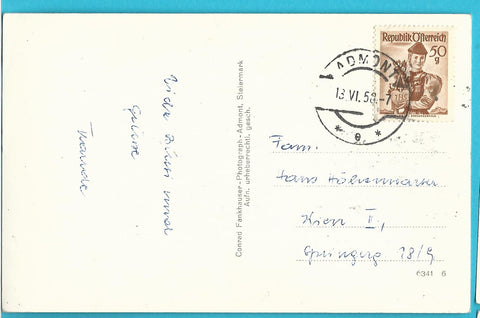 Republik Österreich
50
g
ADMONT
13.VI.58.-7
* e *
Fam.
Hans
Wien II,
18/9
Conrad Fankhauser-Photograph-Admont, Steiermark
Aufn. urheberrechtl. gesch.
6341 6
Viele und
Grüsse